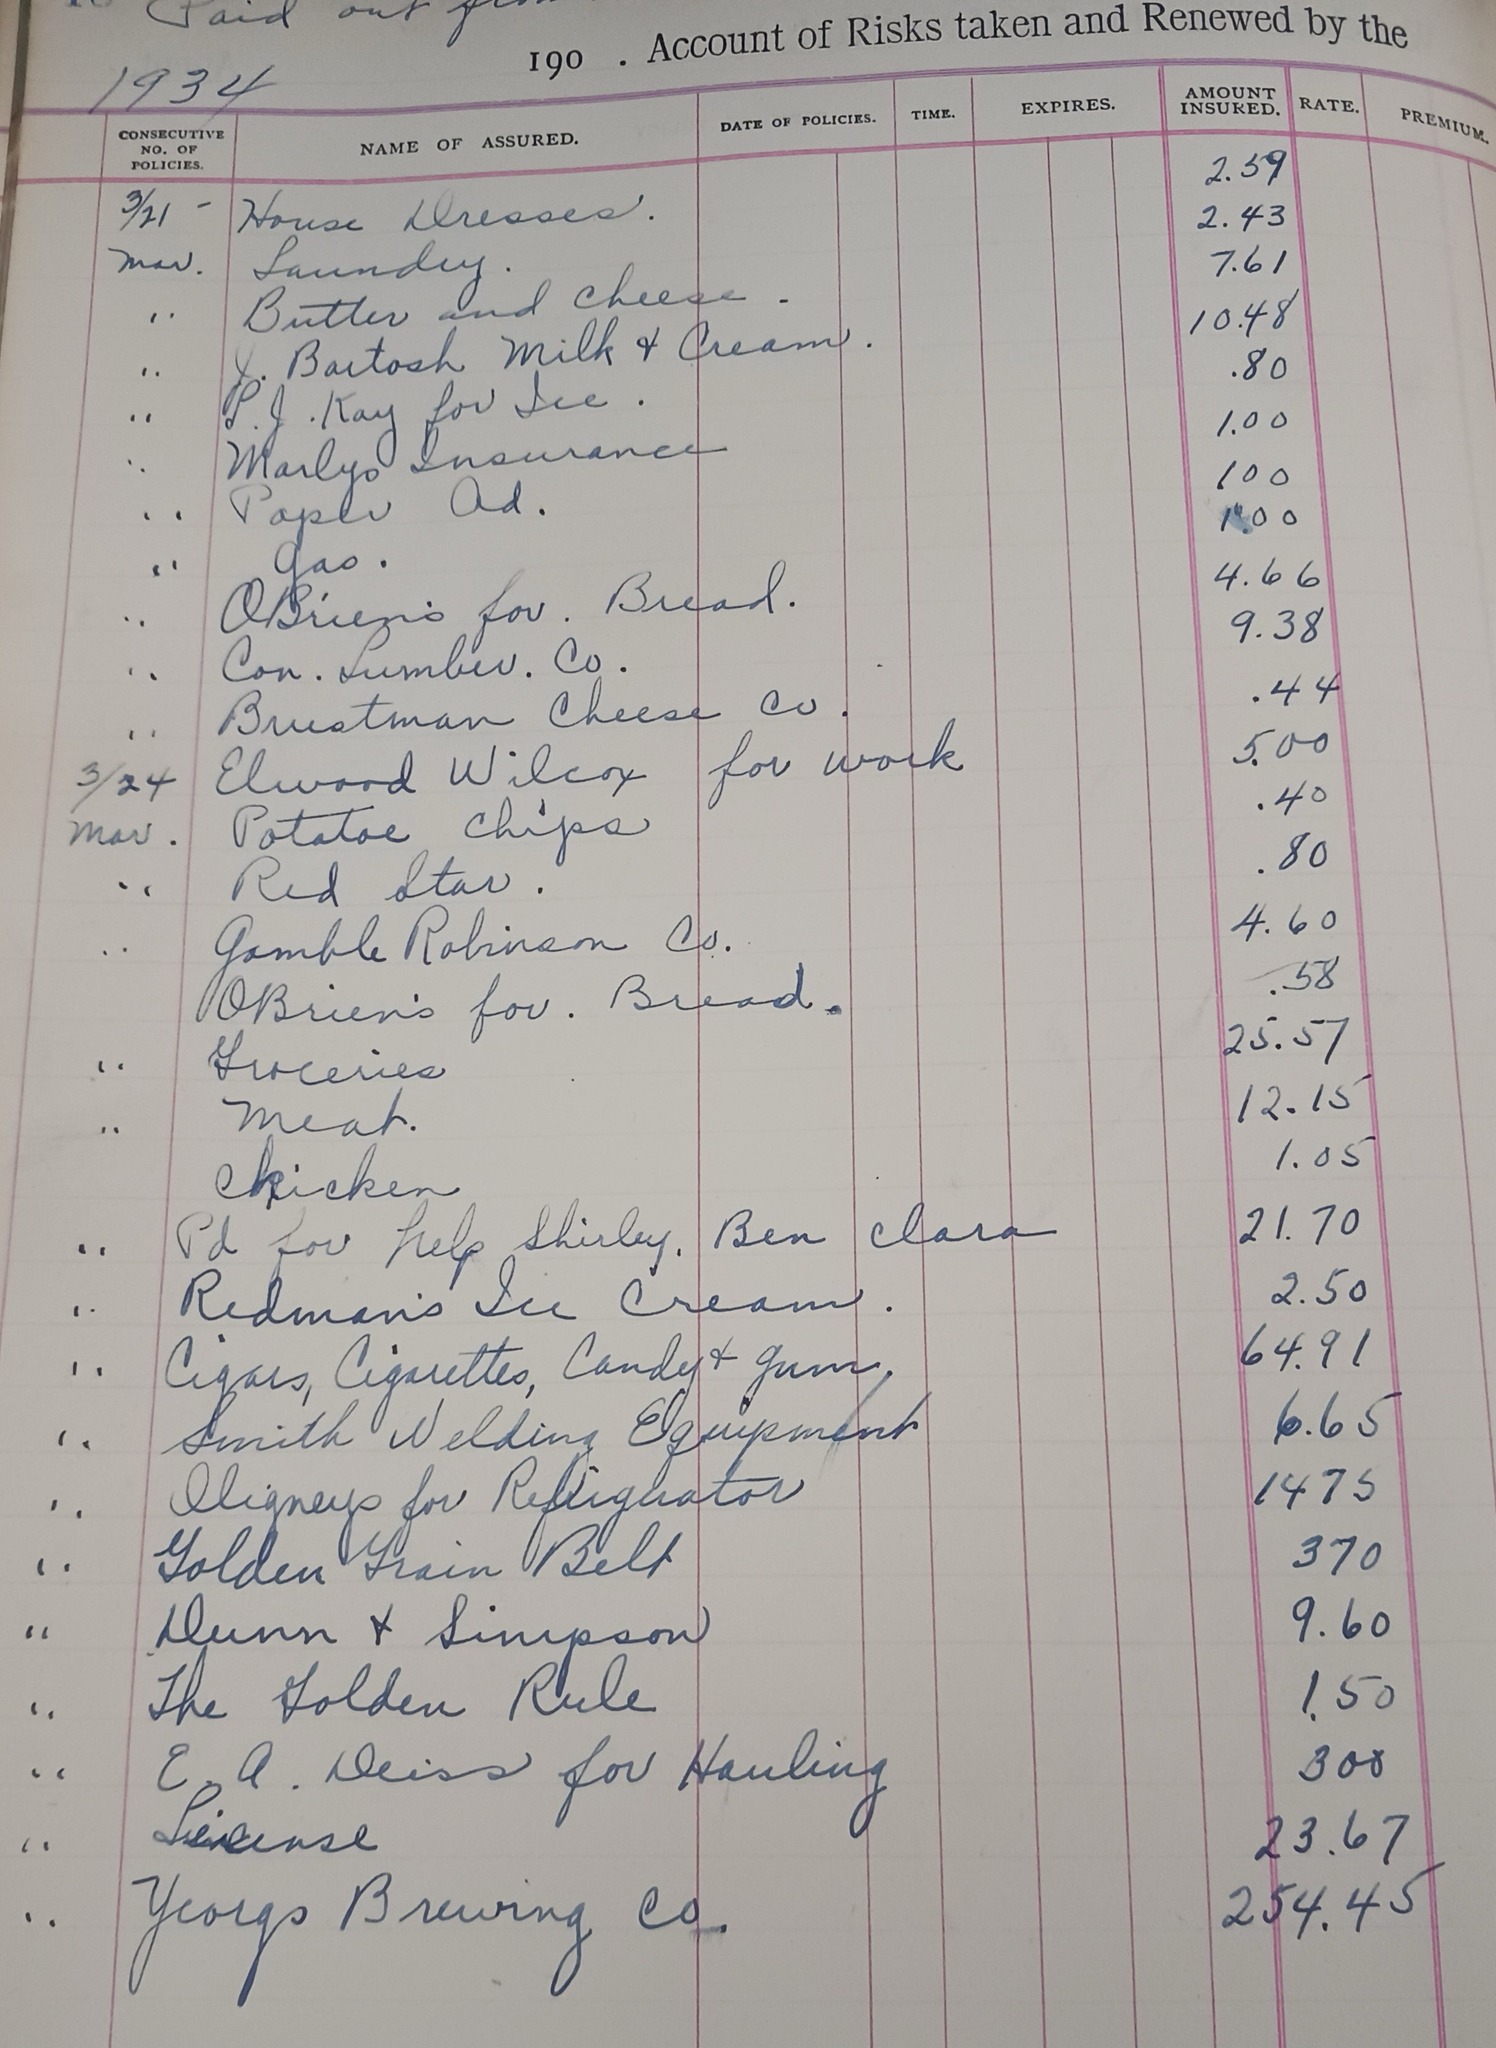 Paid out from
190 . Account of Risks taken and Renewed by the
1934
CONSECUTIVE NO. OF POLICIES. NAME OF ASSURED. DATE OF POLICIES. TIME. EXPIRES. AMOUNT INSURED. RATE. PREMIUM.
3/21 - House Dresses. 2.59
Mar. Laundry. 2.43
" Butter and cheese. 7.61
" J. Bartosh Milk & Cream. 10.48
" P. J. Kay for Ice. .80
" Marlys Insurance 1.00
" Paper Ad. 100
" Gas. 1.00
" OBrien's for. Bread. 4.66
" Con. Lumber. Co. 9.38
" Brustman Cheese Co. .44
3/24 Elwood Wilcox for work 5.00
Mar. Potatoe Chips .40
" Red Star. .80
" Gamble Robinson Co. 4.60
OBrien's for. Bread. .58
" Groceries 25.57
" Meat. 12.15
Chicken 1.05
" Pd for help Shirley. Ben Clara 21.70
" Redman's Ice Cream. 2.50
" Cigars, Cigarettes, Candy & Gum. 64.91
" Smith Welding Equipment 6.65
" Digneys for Refrigerator 1475
" Golden Grain Belt 370
" Dunn & Simpson 9.60
" The Golden Rule 1.50
" E. A. Deiss for Hauling 300
" License 23.67
" Yeorgs Brewing Co. 254.45